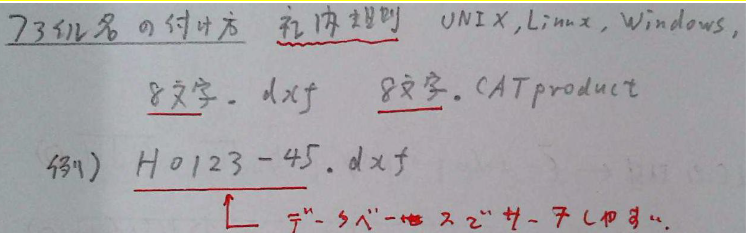 ファイル名の付け方 社内規則 UNIX, Linux, Windows,
8文字.dxf 8文字.CATproduct
例) H0123-45.dxf
データベースでサーチしやすい.